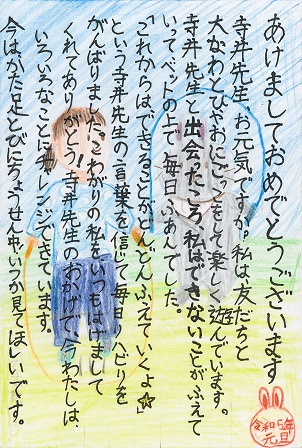 あけましておめでとうございます
寺井先生、お元気ですか？私は友だちと
大なわとびやおにごっこをして楽しく遊んでいます。
寺井先生と出会たころ、私はできないことがふえて
いって、ベットの上で毎日ふあんでした。
「これからは、できることがどんどんふえていくよ☆」
という寺井先生の言葉を信じて毎日リハビリを
がんばりました。こわがりの私をいつもはげまして
くれてありがとう！寺井先生のおかげで、今わたしは、
いろいろなことにチャレンジできています。
今はかた足とびにちょうせん中。いつか見てほしいです。
令和5年
元旦